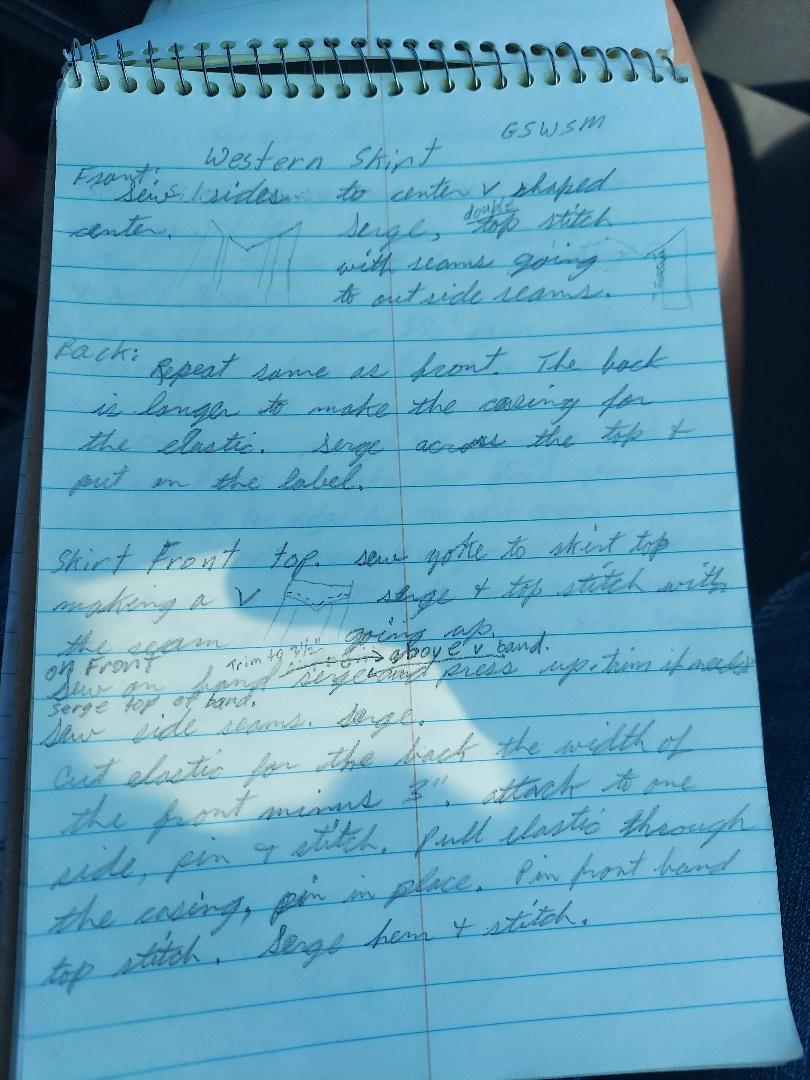 GSWSM
Western Skirt
Front:
Sew sides to center V shaped
center. Serge, double top stitch
with seams going
to outside seams.
Back:
Repeat same as front. The back
is longer to make the casing for
the elastic. Serge across the top &
put on the label.
Skirt Front top. sew yoke to skirt top
making a V serge & top stitch with
the seam going up
on Front Trim to above V band.
Sew on band serge press up. Trim if needs
serge top of band.
Sew side seams. Serge.
Cut elastic for the back the width of
the front minus 3". attach to one
side, pin & stitch. Pull elastic through
the casing, pin in place. Pin front band
top stitch. Serge hem & stitch.